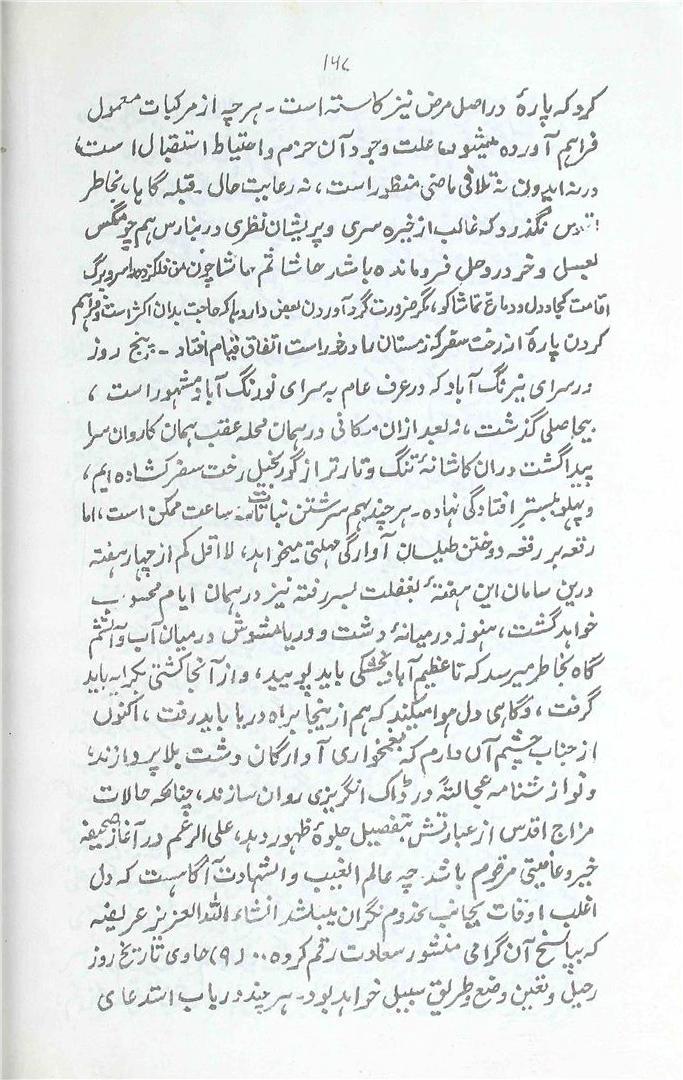 ۱۶۷
کرد که پارهٔ دراصل مرض نیز کاسته است - هرچه از مرکبات معمول
فراهم آورده میشود، علت وجود آن حزم و احتیاط استقبال است
ورنه ایدون نه تلافی ماضی منظور است، نه رعایت حال - قبله گاها، بخاطر
اقدس نگذرد که غالب از خیره سری و پریشان نظری در بنارس هم چو مگس
بعسل و خر در وحل فرو مانده باشد حاشا ثم حاشا چون من فلکزده را سر و برگ
اقامت کجا و دل و دماغ تماشا کو، مگر ضرورت گرد آوردن بعض داروها که حاجت بدان اکثر است و فراهم
کردن پارهٔ از رخت سفر که زمستان را درخور است اتفاق قیام افتاد - پنج روز
در سرای نیرنگ آباد که در عرف عام به سرای نورنگ آباد مشهور است،
بیحاصلی گذشت، و بعد ازان مکانی در همان محله عقب همان کاروان سرا
پیدا گشت دران کاشانهٔ تنگ و تار تر از گور بخیل رخت سفر کشاده ایم،
و پهلو ببستر افتادگی نهاده - هر چند بهم سرشتن نباتات ساعت ممکن است، اما
رقعه بر رقعه دوختن طیلسان آوارگی مهلتی میخواهد، لااقل کم از چهار هفته
درین سامان این هفتهٔ بغفلت بسر رفته نیز در همان ایام محسوب
خواهد گشت، هنوز در میانهٔ دشت و دریا مشوش و درمیان آب و آتشم
گاه بخاطر میرسد که تا عظیم آباد بخشکی باید پویید، و از آنجا کشتی بکرایه باید
گرفت، و گاهی دل هوا میکند که هم از ینجا براه دریا باید رفت، اکنون
از جناب چشم آن دارم که بغمخواری آوارگان دشت بلا پردازند،
و نوازشنامه عجالتهً در ڈاک انگریزی روان سازند، چنانکه حالات
مزاج اقدس از عبارتش بتفصیل جلوهٔ ظهور دهد، علی الرغم در آغاز صحیفه
خیر و عافیتی مرقوم باشد. چه عالم الغیب والشهادت آگاهست که دل
اغلب اوقات بجانب مخدوم نگران میباشد انشاء الله العزیز عریضه
که بپاسخ آن گرامی منشور سعادت رقم کرده ۰۰ (۹) حاوی تاریخ روز
رحیل و تعین وضع و طریق سبیل خواهد بود - هر چند در باب استدعای